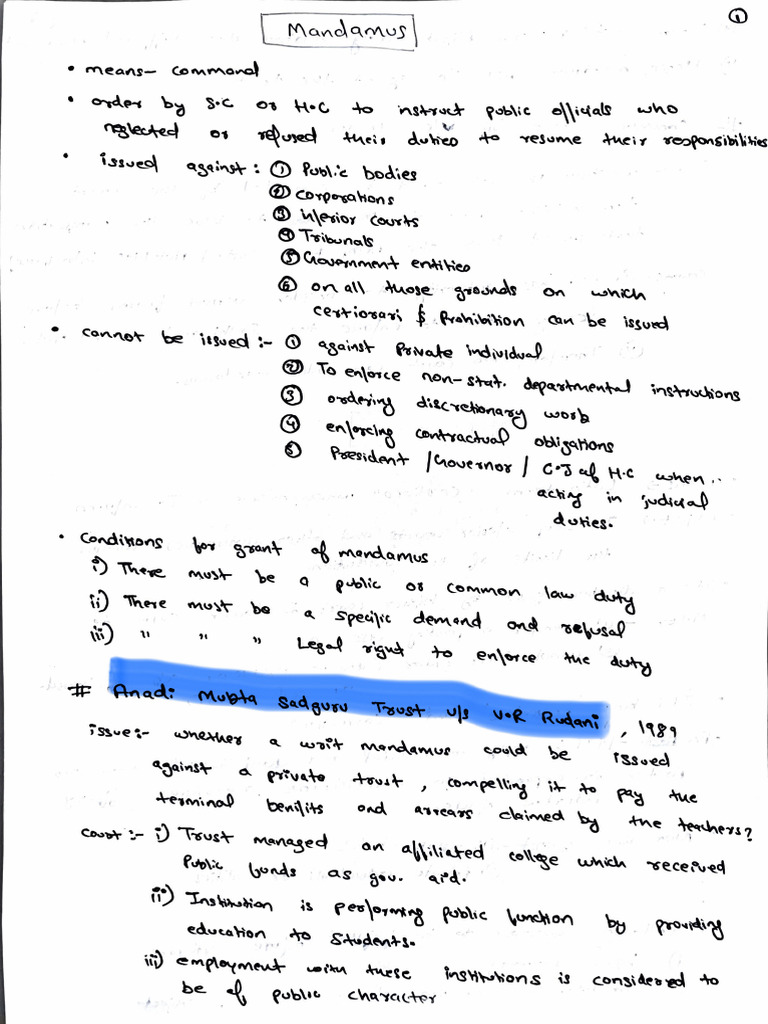 ①
Mandamus
• means- command
• order by S.C or H.C to instruct public officials who
neglected or refused their duties to resume their responsibilities
• issued against: ① Public bodies
② corporations
③ inferior courts
④ Tribunals
⑤ Government entities
⑥ on all those grounds on which
certiorari & Prohibition can be issued
• cannot be issued :- ① against private individual
② To enforce non-stat. departmental instructions
③ ordering discretionary work
④ enforcing contractual obligations
⑤ President / Governor / C.J of H.C when..
acting in judicial
duties.
• Conditions for grant of mandamus
i) There must be a public or common law duty
ii) There must be a specific demand and refusal
iii) " " " Legal right to enforce the duty
# Anadi Mukta Sadguru Trust v/s V.R Rudani, 1989
issue:- whether a writ mandamus could be issued
against a private trust, compelling it to pay the
terminal benifits and arrears claimed by the teachers?
Court :- i) Trust managed an affiliated college which received
Public funds as gov. aid.
ii) Institution is performing public function by providing
education to students.
iii) employment with these institutions is considered to
be of public character